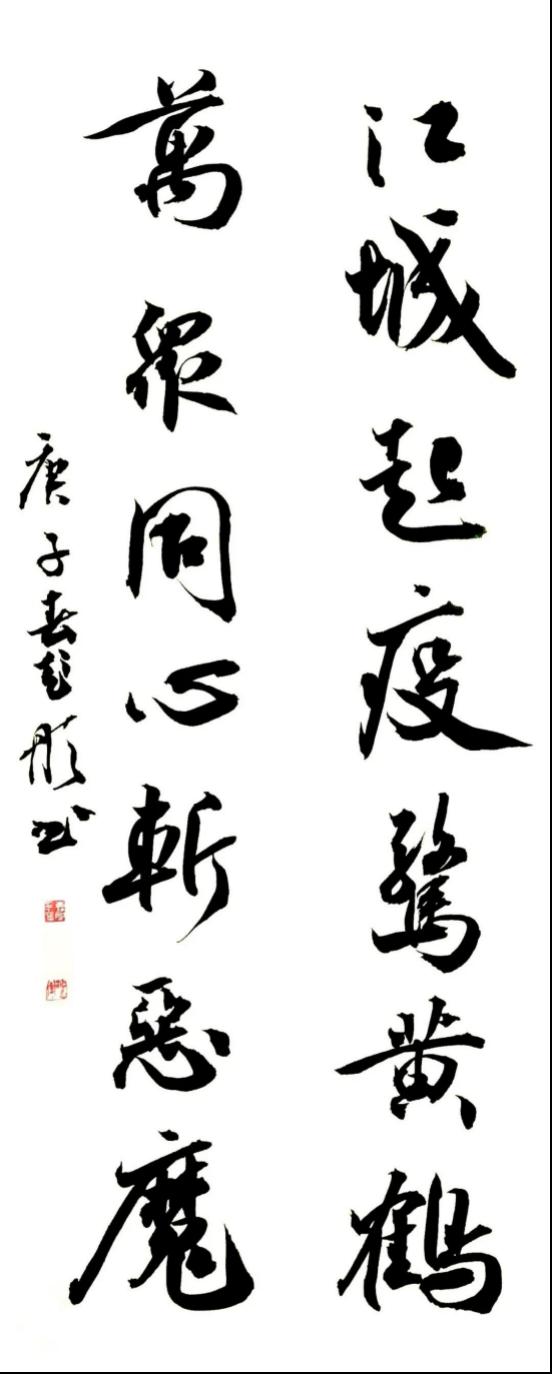 江城起疫驚黄鶴
萬眾同心斬惡魔
庚子春彭彤书